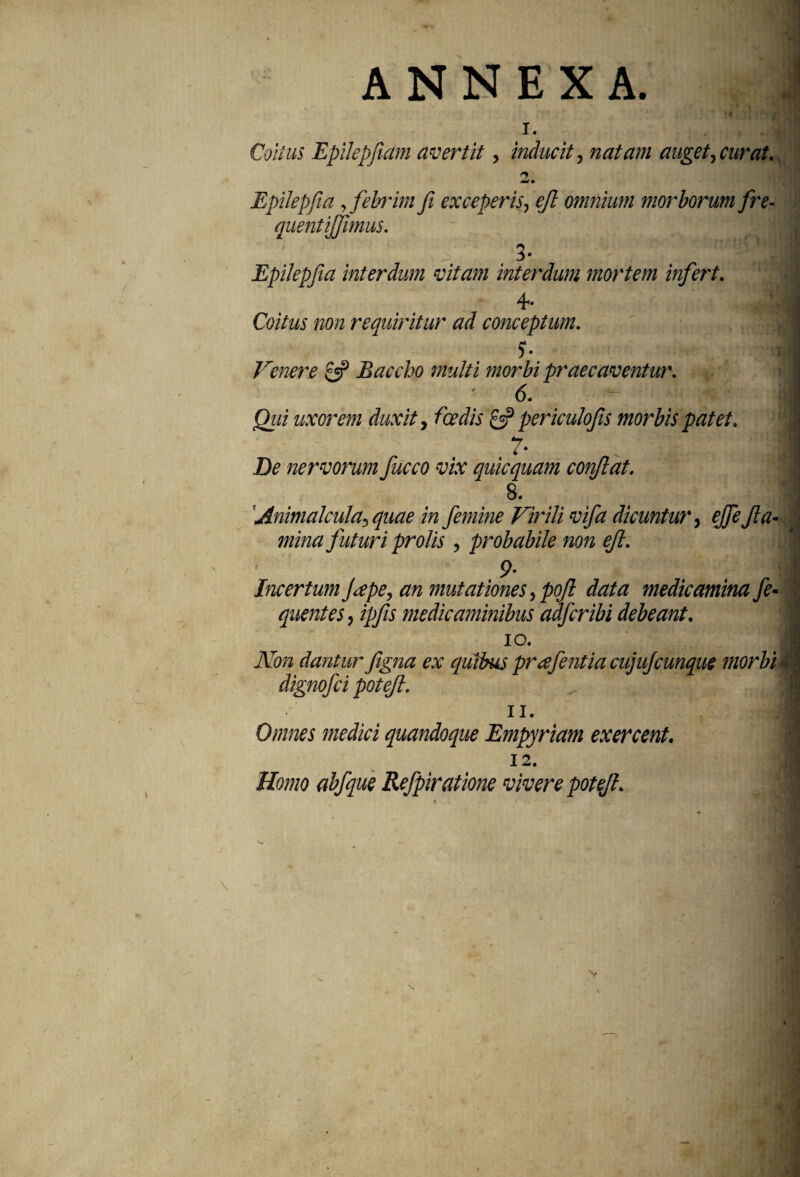 ANNEXA.
1.
Coitus Epilepſiam avertit , inducit, natam auget, curat.
2.
Epilepſia , febrim ſi exceperis, eſt omnium morborum fre-
quentiſſimus.
3.
Epilepſia interdum vitam interdum mortem infert.
4.
Coitus non requiritur ad conceptum.
5.
Venere & Baccho multi morbi praecaventur.
6.
Qui uxorem duxit, fœdis & periculoſis morbis patet.
7.
De nervorum ſucco vix quicquam conſtat.
8.
Animalcula, quae in ſemine Virili viſa dicuntur, eſſe ſta-
mina futuri prolis , probabile non eſt.
9.
Incertum ſæpe, an mutationes, poſt data medicamina ſe-
quentes, ipſis medicaminibus adſcribi debeant.
10.
Non dantur ſigna ex quibus præſentia cujuſcunque morbi
dignoſci poteſt.
11.
Omnes medici quandoque Empyriam exercent.
12.
Homo abſque Reſpiratione vivere poteſt.